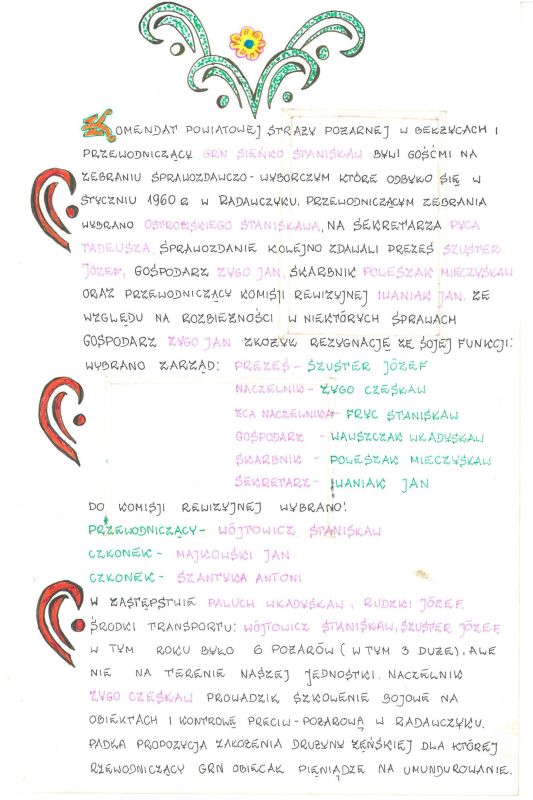 KOMENDAT POWIATOWEJ STRAŻY POŻARNEJ W BEŁŻYCACH I
PRZEWODNICZĄCY GRN SIEŃKO STANISŁAW BYLI GOŚĆMI NA
ZEBRANIU SPRAWOZDAWCZO-WYBORCZYM KTÓRE ODBYŁO SIĘ W
STYCZNIU 1960 R W RADAWCZYKU. PRZEWODNICZĄCYM ZEBRANIA
WYBRANO OSTROWSKIEGO STANISŁAWA, NA SEKRETARZA PYCA
TADEUSZA. SPRAWOZDANIE KOLEJNO ZDAWALI PREZES SZUSTER
JÓZEF, GOSPODARZ ZYGO JAN, SKARBNIK POLESZAK MIECZYSŁAW
ORAZ PRZEWODNICZĄCY KOMISJI REWIZYJNEJ IWANIAK JAN. ZE
WZGLĘDU NA ROZBIEŻNOŚCI W NIEKTÓRYCH SPRAWACH
GOSPODARZ ZYGO JAN ZŁOŻYŁ REZYGNACJĘ ZE SOJEJ FUNKCJI:
WYBRANO ZARZĄD: PREZES - SZUSTER JÓZEF
NACZELNIK - ZYGO CZESŁAW
ZCA NACZELNIKA - FRYC STANISŁAW
GOSPODARZ - WAWSZCZAK WŁADYSŁAW
SKARBNIK - POLESZAK MIECZYSŁAW
SEKRETARZ - IWANIAK JAN
DO KOMISJI REWIZYJNEJ WYBRANO:
PRZEWODNICZĄCY - WÓJTOWICZ STANISŁAW
CZŁONEK - MAJKOWSKI JAN
CZŁONEK - SZANTYKA ANTONI
W ZASTĘPSTWIE PALUCH WŁADYSŁAW, RUDZKI JÓZEF.
ŚRODKI TRANSPORTU: WÓJTOWICZ STANISŁAW, SZUSTER JÓZEF.
W TYM ROKU BYŁO 6 POŻARÓW (W TYM 3 DUŻE), ALE
NIE NA TERENIE NASZEJ JEDNOSTKI. NACZELNIK
ZYGO CZESŁAW PROWADZIŁ SZKOLENIE BOJOWE NA
OBIEKTACH I KONTROLĘ PRECIW-POŻAROWĄ W RADAWCZYKU.
PADŁA PROPOZYCJA ZAŁOŻENIA DRUŻYNY ŻĘŃSKIEJ DLA KTÓREJ
RZEWODNICZĄCY GRN OBIECAŁ PIENIĄDZE NA UMUNDUROWANIE.